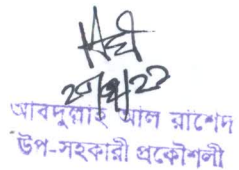 আবদুল্লাহ আল রাশেদ
উপ-সহকারী প্রকৌশলী